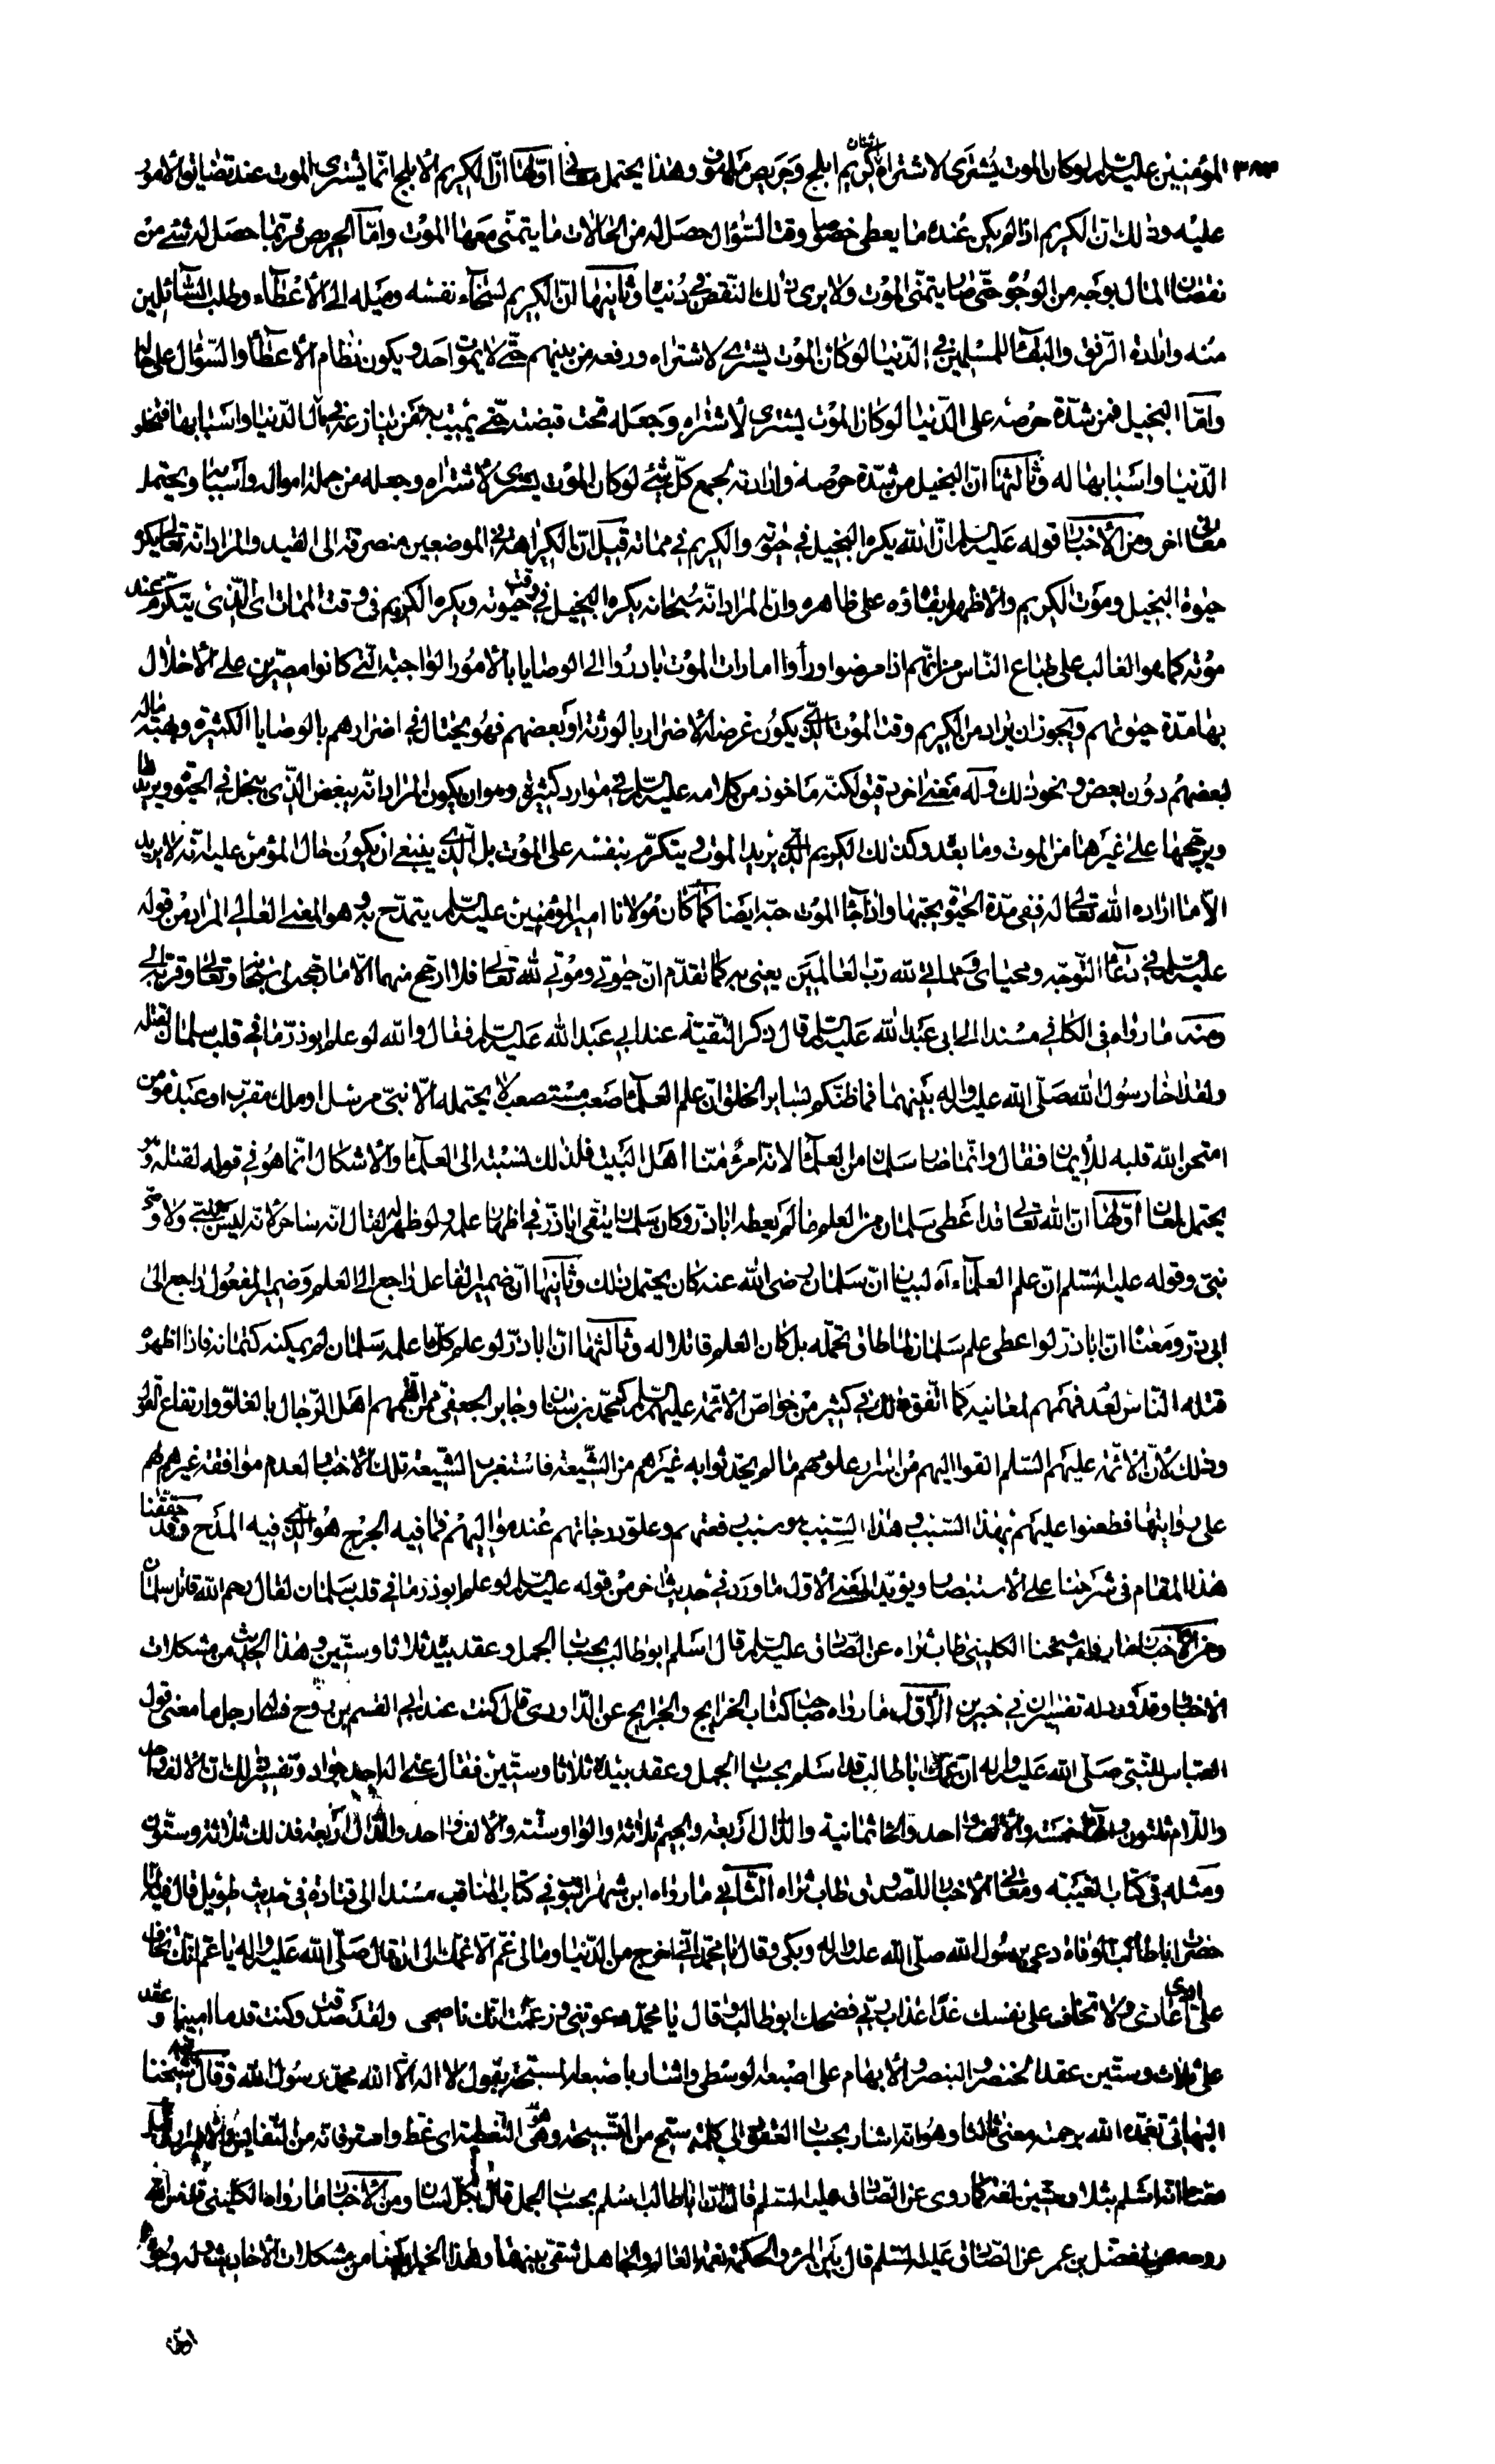 ٣٨٣ المؤمنين عليه السلم لو كان الموت يُشترى لاشتراه اثنان كريم ابلج وحريص ملهوف وهذا يحتمل معاني اوّلها انّ الكريم الابلج انّما يشترى الموت عند تضايق الامور
عليه وذلك انّ الكريم اذا لم يكن عنده ما يعطى خصوصا وقت السّؤال حصل له من الحالات ما يتمنّى معها الموت وامّا الحريص فربّما حصل له شئ من
نقصان المال بوجه من الوجوه حتّى صار يتمنّى الموت ولا يرى ذلك النّقص في دُنياه وثانيها انّ الكريم لسخاء نفسه وميله الى الاعطاء وطلب السّائلين
منه وارادة الرّفق والبقاء للمسلمين في الدّنيا لو كان الموت يشترى لاشتراه ورفعه من بينهم حتّى لا يموت احد ويكون نظام الاعطاء والسّؤال على حاله
وامّا البخيل فمن شدّة حرصه على الدّنيا لو كان الموت يشترى لاشتراه وجعله تحت قبضته حتّى يميت به من ينازعه في مال الدّنيا واسبابها فتخلو
الدّنيا واسبابها له وثالثها انّ البخيل من شدّة حرصه وارادته لجمع كلّ شئ لو كان الموت يشترى لاشتراه وجعله من جملة امواله واسبابه ويحتمل
معاني اخر ومن الاخبار قوله عليه السلم انّ الله يكره البخيل في حيوته والكريم في مماته قيل انّ الكراهة في الموضعين منصرفة الى القيد والمراد انّه تعالى يكره
حيوة البخيل وموت الكريم والاظهر ابقاؤه على ظاهره وانّ المراد انّه سُبحانه يكره البخيل في وقت حيوته ويكره الكريم في وقت الممات اى الّذى يتكرّم عند
موته كما هو الغالب على طباع النّاس من انّهم اذا مرضوا وراوا امارات الموت بادروا الى الوصايا بالامور الواجبة الّتى كانوا مصرّين على الاخلال
بها مدّة حيوتهم ويجوز ان يراد من الكريم وقت الموت الّذى يكون غرضه الاضرار بالورثة او بعضهم فهو يحتال في اضرارهم بالوصايا الكثيرة وهبته ماله
لبعضهم دون بعض ونحو ذلك وله معنى اخر دقيق لكنّه ماخوذ من كلامه عليه السلم في موارد كثيرة وهو ان يكون المراد انّه يبغض الّذى يبخل في الحيوة ويريدها
ويرجّحها على غيرها من الموت وما بعده وكذلك الكريم الّذى يريد الموت ويتكرّم بنفسه على الموت بل الّذى ينبغى ان يكون حال المؤمن عليه انّه لا يريد
الّا ما اراده الله تعالى له ففى مدّة الحيوة يحبّها واذا جاء الموت حبّه ايضا كما كان مولانا امير المؤمنين عليه السلم يتمدّح به وهو المعنى العالى المراد من قوله
عليه السلم في دعاء التّوجّه ومحياى ومماتى لله ربّ العالمين يعنى به كما تقدّم انّ حيوتى وموتى لله تعالى فلا ارجح منهما الّا ما رجّحه لى سبحانه وتعالى وقرّبه الىّ
ومنه ما رواه في الكافي مسندا الى ابى عبد الله عليه السلم قال ذكر التّقيّة عند ابى عبد الله عليه السلم فقال والله لو علم ابوذر ما في قلب سلمان لقتله
ولقد اخا رسول الله صلّى الله عليه واله بينهما فما ظنّكم بساير الخلق انّ علم العلماء صعب مستصعب لا يحتمله الّا نبىّ مرسل او ملك مقرّب او عبد مؤمن
امتحن الله قلبه للايمان فقال وانّما صار سلمان من العلماء لانّه امرؤ منّا اهل البيت فلذلك نسبته الى العلماء والاشكال انّما هو في قوله لقتله وهو
يحتمل لمعان اوّلها انّ الله تعالى قد اعطى سلمان من العلم ما لم يعطه اباذر وكان سلمان يتّقى اباذر في اظهار علمه ولو ظهر له لقال انّه ساحر لانّه ليس بنبىّ ولا وصىّ
نبىّ وقوله عليه السّلم انّ علم العلماء اه لبيان انّ سلمان رضى الله عنه كان يحتمل ذلك وثانيها انّ ضمير الفاعل راجع الى العلم وضمير المفعول راجع الى
ابى ذر ومعناه انّ اباذر لو اعطى علم سلمان لما طاق تحمّله بل كان العلم قاتلا له وثالثها انّ اباذر لو علم كلّ ما علمه سلمان لم يمكنه كتمانه فاذا اظهره
قتله النّاس لعدم فهمهم لمعانيه كما اتّفق ذلك في كثير من خواصّ الائمّة عليهم السلم كمحمّد بن سنان وجابر الجعفي ممّن اتّهمهم اهل الرّجال بالغلوّ وارتفاع القول
وذلك لانّ الائمّة عليهم السّلم القوا اليهم من اسرار علومهم ما لم يحدّثوا به غيرهم من الشّيعة فاستغرب الشّيعة تلك الاخبار لعدم موافقة غيرهم لهم
على روايتها فطعنوا عليهم بهذا السّبب وهذا السّبب هو سبب رفعتهم وعلوّ درجاتهم عند مواليهم فما فيه الجرح هو الّذى فيه المدح وقد حقّقنا
هذا المقام في شرحنا على الاستبصار ويؤيّد المعنى الاوّل ما ورد في حديث اخر من قوله عليه السلم لو علم ابوذر ما في قلب سلمان لقال رحم الله قاتل سلمان
ومن الاخبار ما رواه شيخنا الكلينى طاب ثراه عن الصّادق عليه السلم قال اسلم ابوطالب بحساب الجمل وعقد بيده ثلاثا وستّين وهذا الحديث من مشكلات
الاخبار وقد ورد له تفسيران في خبرين الاوّل ما رواه صاحب كتاب الخرايج والجرايح عن الدّاودى قال كنت عند ابى القسم بن روح فساله رجل ما معنى قول
العبّاس للنّبى صلّى الله عليه واله انّ عمّك اباطالب قد اسلم بحساب الجمل وعقد بيده ثلاثا وستّين فقال عنى اله احد جواد وتفسير ذلك انّ الالف واحد
واللّام ثلثون والهاء خمسة والالف واحد والحاء ثمانية والدّال اربعة والجيم ثلاثة والواو ستّة والالف واحد والدّال اربعة فذلك ثلاثة وستّون
ومثله في كتاب الغيبة ومعاني الاخبار للصّدوق طاب ثراه الثّاني ما رواه ابن شهراشوب في كتاب المناقب مسندا الى قتادة في حديث طويل قال فيه لمّا
حضرت اباطالب الوفاة دعى برسول الله صلّى الله عليه واله وبكى وقال يا محمّد انّى اخرج من الدّنيا وما لى غمّ الّا غمّك الى ان قال صلّى الله عليه واله يا عمّ انّك تخاف
علىّ اذى اعادىّ ولا تخاف على نفسك غدا عذاب ربّى فضحك ابوطالب وقال يا محمّد دعوتنى وزعمت انّك ناصحى ولقد صدقت وكنت قدما امينا وعقد
على ثلاث وستّين عقد الخنصر والبنصر والابهام على اصبعه الوسطى واشار باصبعه المسبّحة يقول لا اله الّا الله محمّد رسول الله وقال شيخنا
البهائى تغمّده الله برحمته معنى ثالثا وهو انّه اشار بحساب العقود الى كلمة سبّح من التّسبيحة وهى التّغطية اى غطّ واستر فانّه من النّفايس
معناه انّه اسلم بثلاث وستّين لغة كما روى عن الصّادق عليه السّلم قال انّ اباطالب اسلم بحساب الجمل قال بكلّ لسان ومن الاخبار ما رواه الكلينى قدّس الله
روحه عن مفضّل بن عمر عن الصّادق عليه السّلم قال بين المرء والحكمة نعمة العالم والجاهل شقىّ بينهما وهذا الخبر ايضا من مشكلات الاخبار وله وجوه